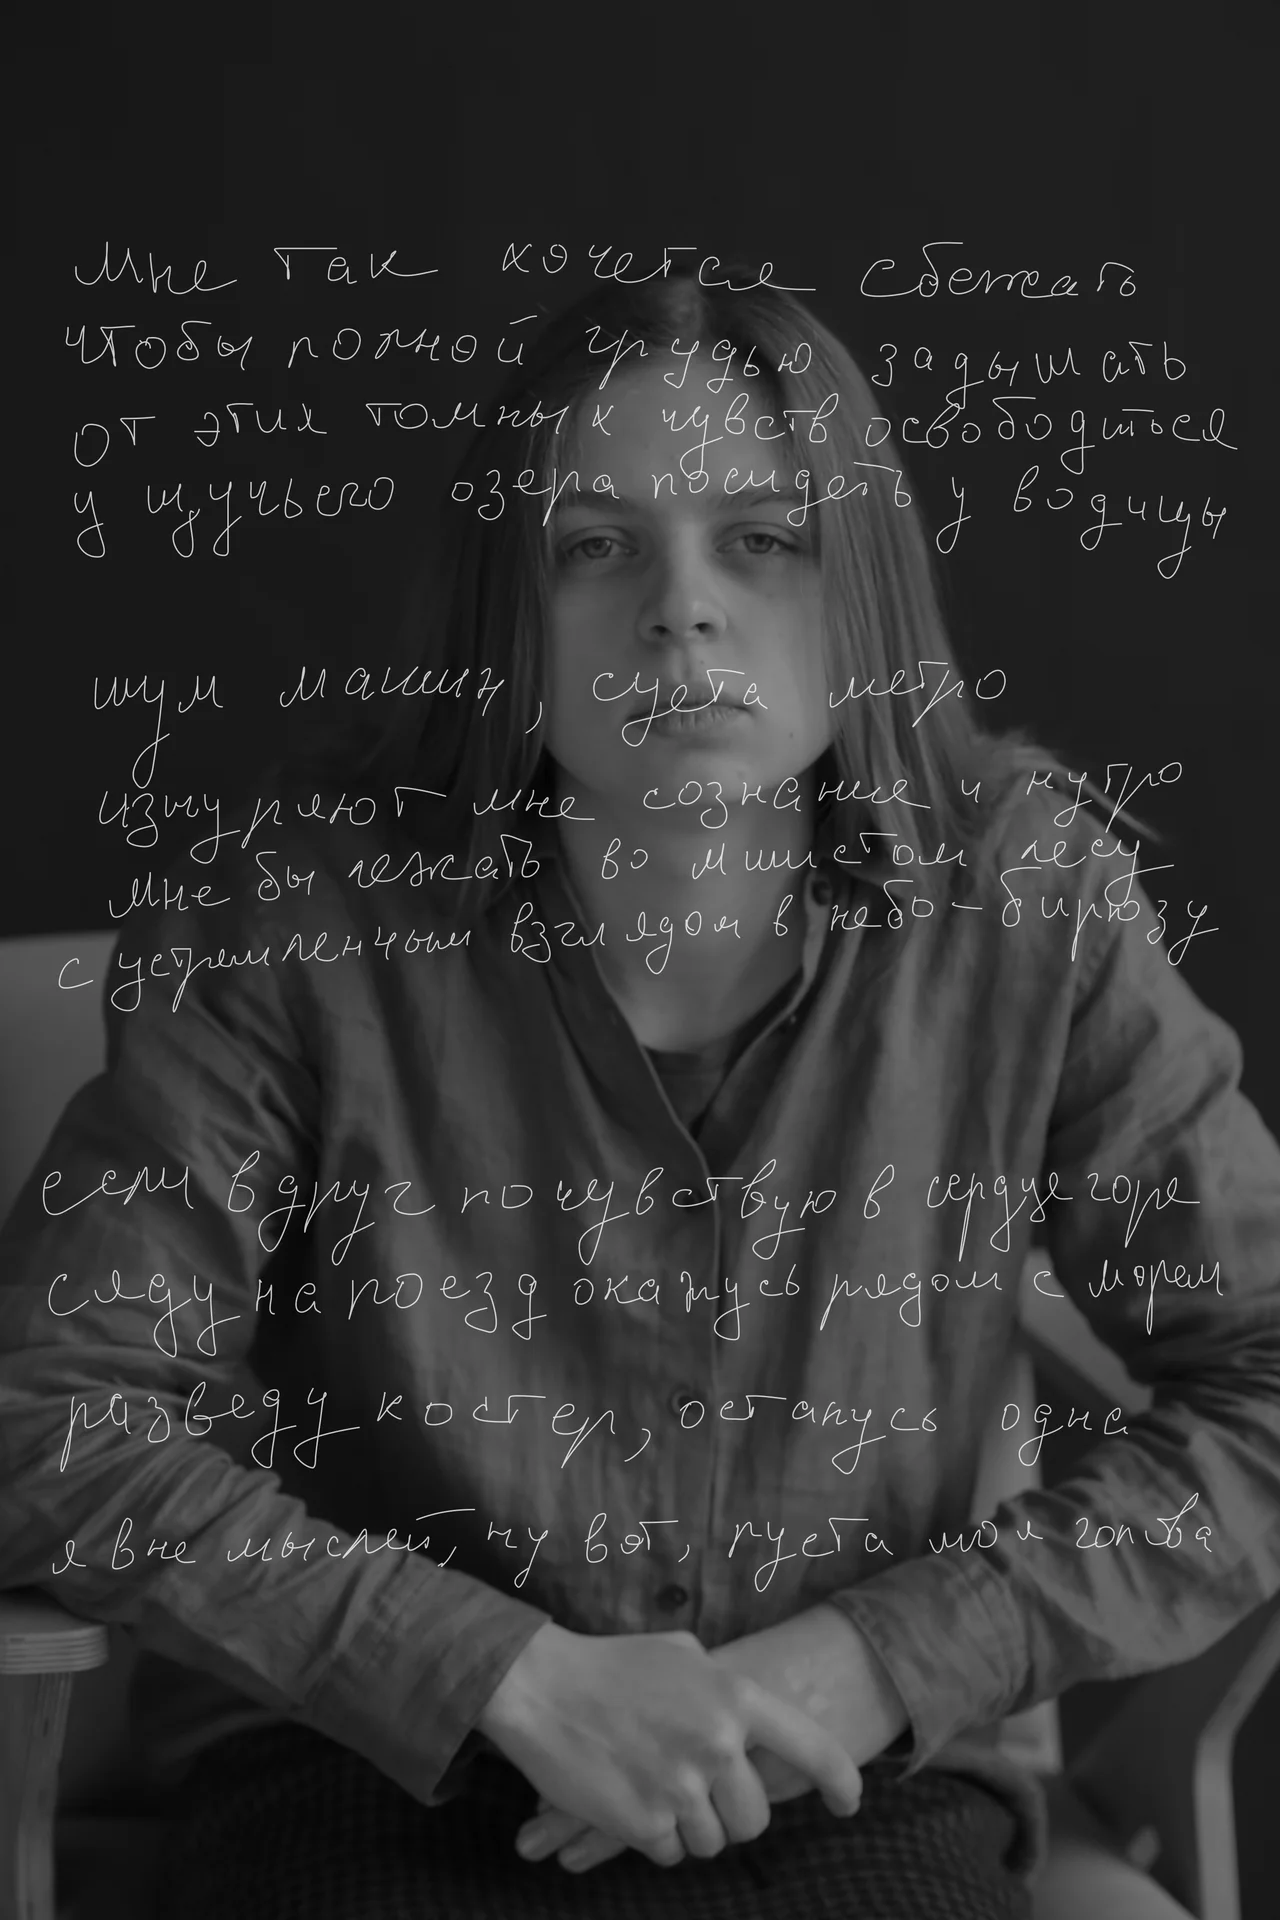 Мне так хочется сбежать
чтобы полной грудью задышать
от этих томных чувств освободиться
у щучьего озера посидеть у водицы
шум машин, суета метро
изнуряют мне сознание и нутро
мне бы лежать во мшистом лесу
с устремленным взглядом в небо-бирюзу
если вдруг почувствую в сердце горе
сяду на поезд окажусь рядом с морем
разведу костер, останусь одна
я вне мыслей, ну вот, пуста моя голова